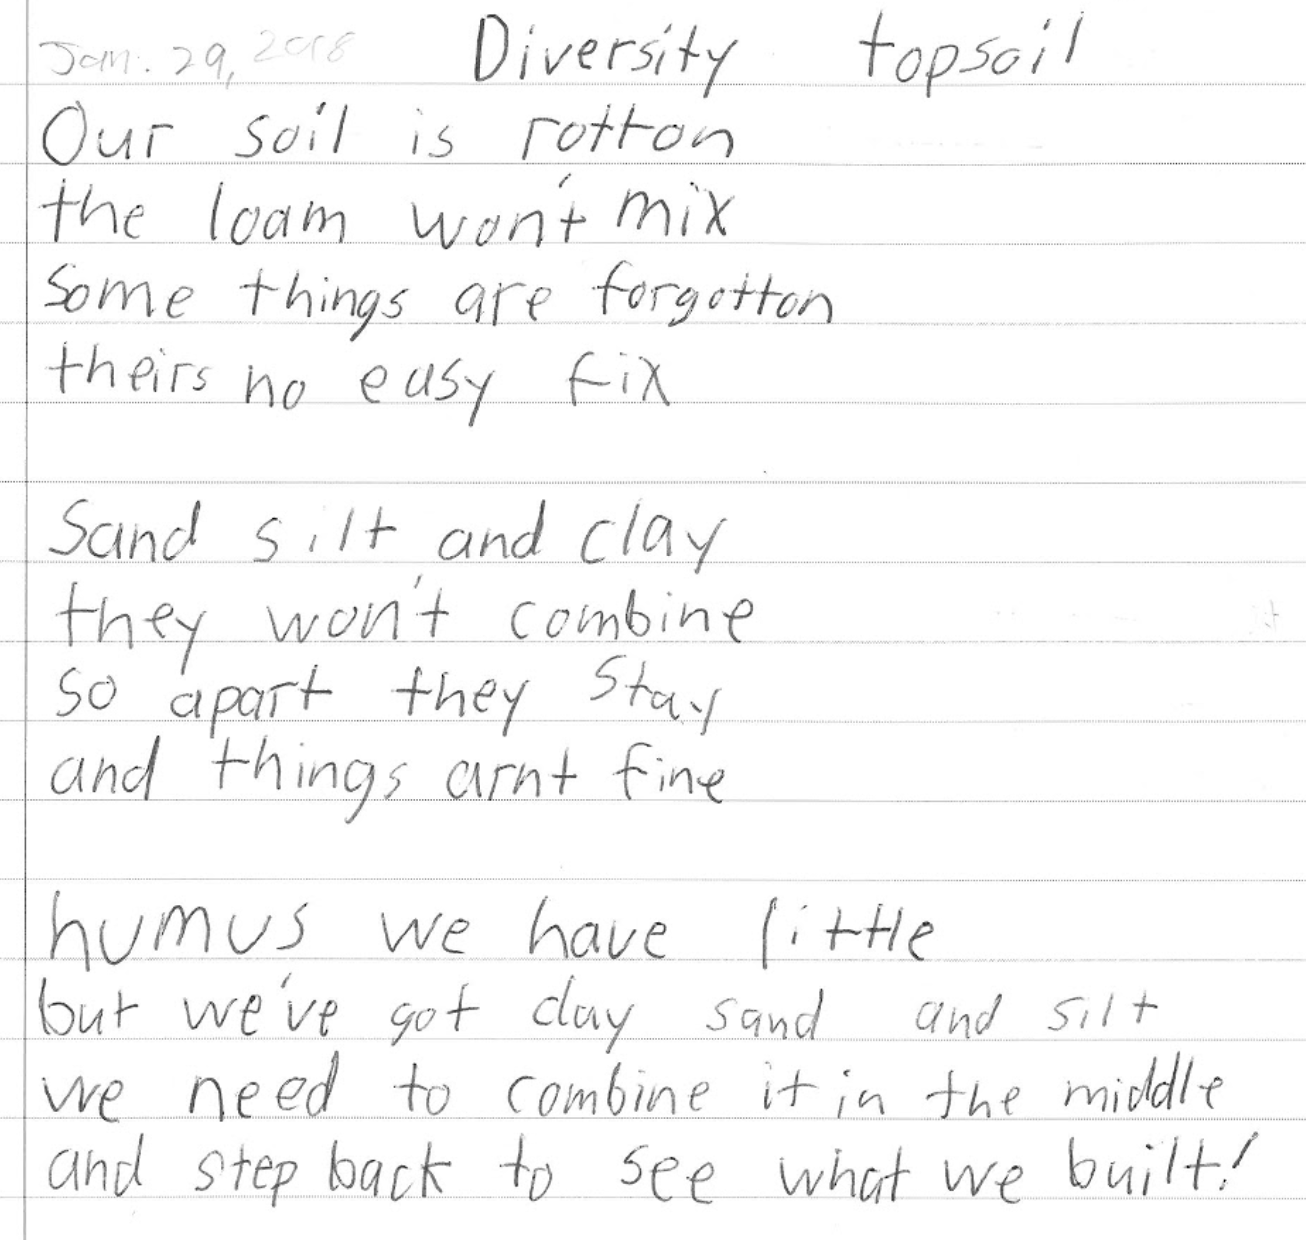 Jan. 29, 2018 Diversity topsoil
Our soil is rotton
the loam won't mix
Some things are forgotton
theirs no easy fix
Sand silt and clay
they won't combine
so apart they stay
and things arnt fine
humus we have little
but we've got clay sand and silt
we need to combine it in the middle
and step back to see what we built!